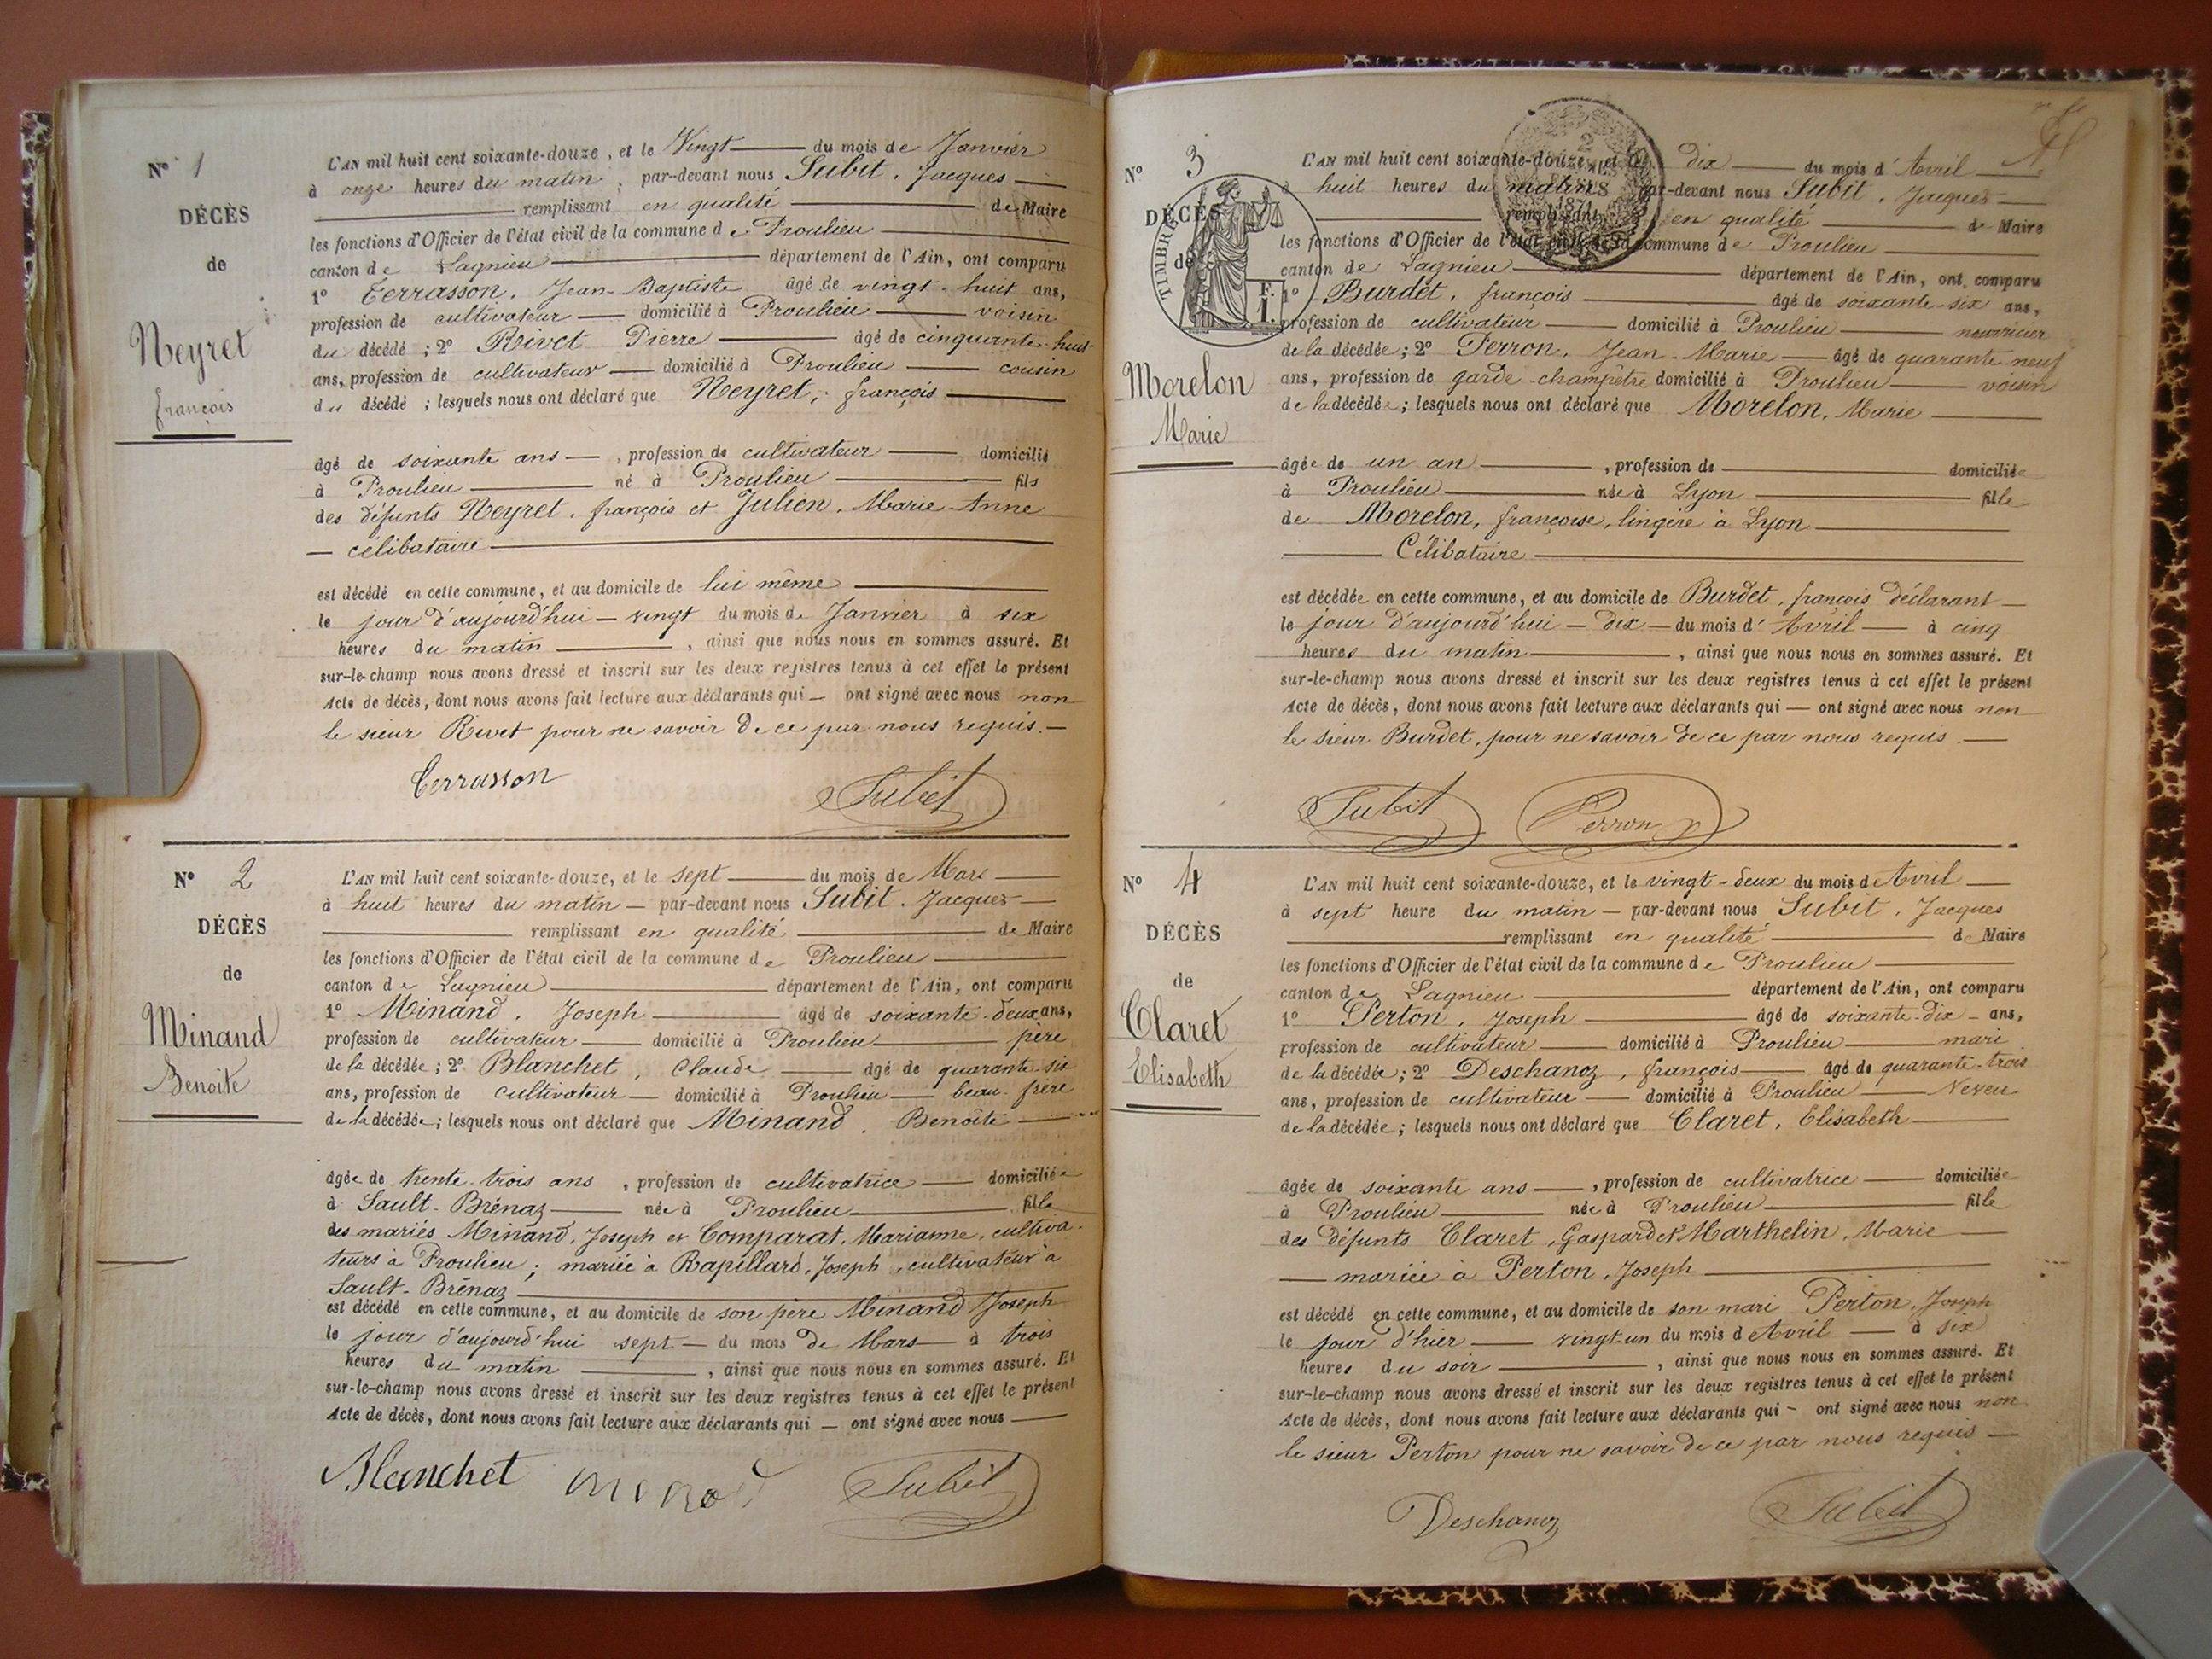 N° 1
DÉCÈS
de
Neyret
françois
L'AN mil huit cent soixante-douze, et le Vingt du mois de Janvier
à onze heures du matin, par-devant nous Subit, Jacques
remplissant en qualité de Maire
les fonctions d'Officier de l'état civil de la commune de Proulieu
canton de Lagnieu département de l'Ain, ont comparu
1° Terrasson, Jean-Baptiste âgé de vingt-huit ans,
profession de cultivateur domicilié à Proulieu voisin
du décédé; 2° Rivet Pierre âgé de cinquante-huit
ans, profession de cultivateur domicilié à Proulieu cousin
du décédé; lesquels nous ont déclaré que Neyret, françois
âgé de soixante ans, profession de cultivateur domicilié
à Proulieu né à Proulieu fils
des défunts Neyret, françois et Julien, Marie-Anne
célibataire
est décédé en cette commune, et au domicile de lui même
le jour d'aujourd'hui vingt du mois de Janvier à six
heures du matin, ainsi que nous nous en sommes assuré. Et
sur-le-champ nous avons dressé et inscrit sur les deux registres tenus à cet effet le présent
Acte de décès, dont nous avons fait lecture aux déclarants qui ont signé avec nous non
le sieur Rivet pour ne savoir de ce par nous requis.
Terrasson Subit
N° 2
DÉCÈS
de
Minand
Benoite
L'AN mil huit cent soixante-douze, et le sept du mois de Mars
à huit heures du matin par-devant nous Subit, Jacques
remplissant en qualité de Maire
les fonctions d'Officier de l'état civil de la commune de Proulieu
canton de Lagnieu département de l'Ain, ont comparu
1° Minand, Joseph âgé de soixante-deux ans,
profession de cultivateur domicilié à Proulieu père
de la décédée; 2° Blanchet, Claude âgé de quarante six
ans, profession de cultivateur domicilié à Proulieu beau-frère
de la décédée; lesquels nous ont déclaré que Minand, Benoîte
âgée de trente-trois ans, profession de cultivatrice domiciliée
à Sault-Brénaz née à Proulieu fille
des mariés Minand, Joseph et Comparat, Marianne, cultiva-
teurs à Proulieu; mariée à Rapillard, Joseph, cultivateur à
Sault-Brénaz
est décédé en cette commune, et au domicile de son père Minand Joseph
le jour d'aujourd'hui sept du mois de Mars à trois
heures du matin, ainsi que nous nous en sommes assuré. Et
sur-le-champ nous avons dressé et inscrit sur les deux registres tenus à cet effet le présent
Acte de décès, dont nous avons fait lecture aux déclarants qui ont signé avec nous
Blanchet Subit
N° 3
DÉCÈS
de
TIMBRE
F.
1.
Morelon
Marie
L'AN mil huit cent soixante-douze, et le dix du mois d'Avril
à huit heures du matin par-devant nous Subit, Jacques
remplissant en qualité de Maire
les fonctions d'Officier de l'état civil de la commune de Proulieu
canton de Lagnieu département de l'Ain, ont comparu
1° Burdet, françois âgé de soixante-six ans,
profession de cultivateur domicilié à Proulieu nourricier
de la décédée; 2° Perron, Jean-Marie âgé de quarante neuf
ans, profession de garde-champêtre domicilié à Proulieu voisin
de la décédée; lesquels nous ont déclaré que Morelon, Marie
âgée de un an, profession de domiciliée
à Proulieu née à Lyon fille
de Morelon, françoise, lingère à Lyon
Célibataire
est décédée en cette commune, et au domicile de Burdet, françois déclarant
le jour d'aujourd'hui dix du mois d'Avril à cinq
heures du matin, ainsi que nous nous en sommes assuré. Et
sur-le-champ nous avons dressé et inscrit sur les deux registres tenus à cet effet le présent
Acte de décès, dont nous avons fait lecture aux déclarants qui ont signé avec nous non
le sieur Burdet, pour ne savoir de ce par nous requis.
Subit Perron
N° 4
DÉCÈS
de
Claret
Elisabeth
L'AN mil huit cent soixante-douze, et le vingt-deux du mois d'Avril
à sept heure du matin par-devant nous Subit, Jacques
remplissant en qualité de Maire
les fonctions d'Officier de l'état civil de la commune de Proulieu
canton de Lagnieu département de l'Ain, ont comparu
1° Perton, Joseph âgé de soixante-dix ans,
profession de cultivateur domicilié à Proulieu mari
de la décédée; 2° Deschanoz, françois âgé de quarante-trois
ans, profession de cultivateur domicilié à Proulieu Neveu
de la décédée; lesquels nous ont déclaré que Claret, Elisabeth
âgée de soixante ans, profession de cultivatrice domiciliée
à Proulieu née à Proulieu fille
des défunts Claret, Gaspard et Marthelin, Marie
mariée à Perton, Joseph
est décédé en cette commune, et au domicile de son mari Perton, Joseph
le jour d'hier vingt-un du mois d'Avril à six
heures du soir, ainsi que nous nous en sommes assuré. Et
sur-le-champ nous avons dressé et inscrit sur les deux registres tenus à cet effet le présent
Acte de décès, dont nous avons fait lecture aux déclarants qui ont signé avec nous non
le sieur Perton pour ne savoir de ce par nous requis
Deschanoz Subit